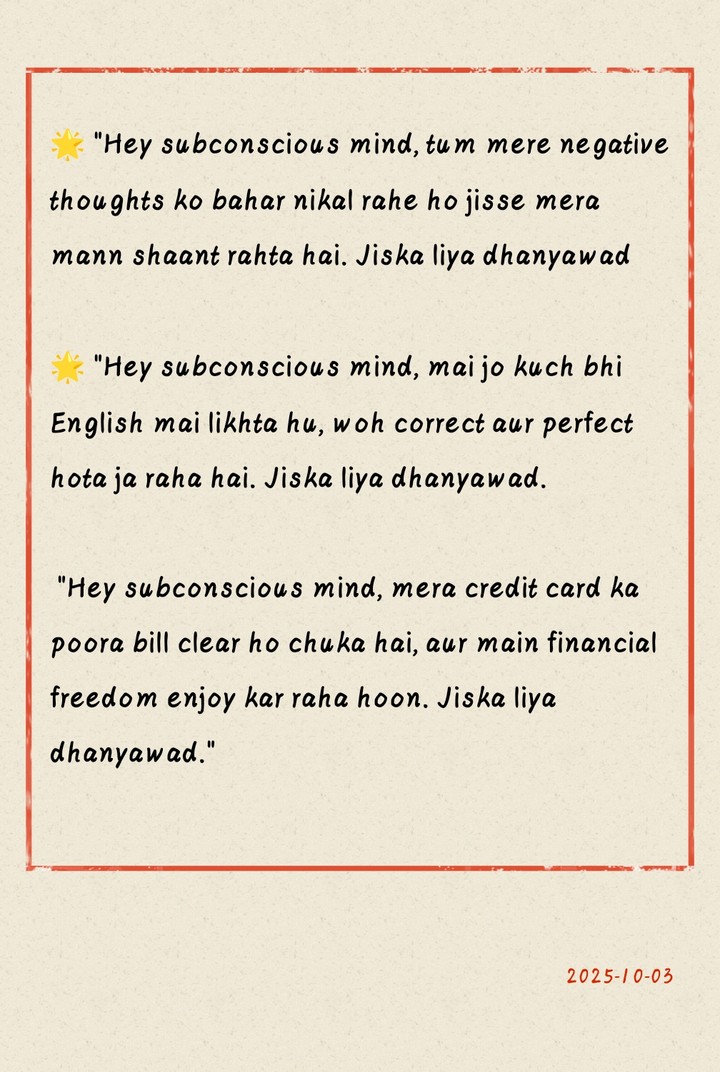 🌟 "Hey subconscious mind, tum mere negative
thoughts ko bahar nikal rahe ho jisse mera
mann shaant rahta hai. Jiska liya dhanyawad
🌟 "Hey subconscious mind, mai jo kuch bhi
English mai likhta hu, woh correct aur perfect
hota ja raha hai. Jiska liya dhanyawad.
"Hey subconscious mind, mera credit card ka
poora bill clear ho chuka hai, aur main financial
freedom enjoy kar raha hoon. Jiska liya
dhanyawad."
2025-10-03